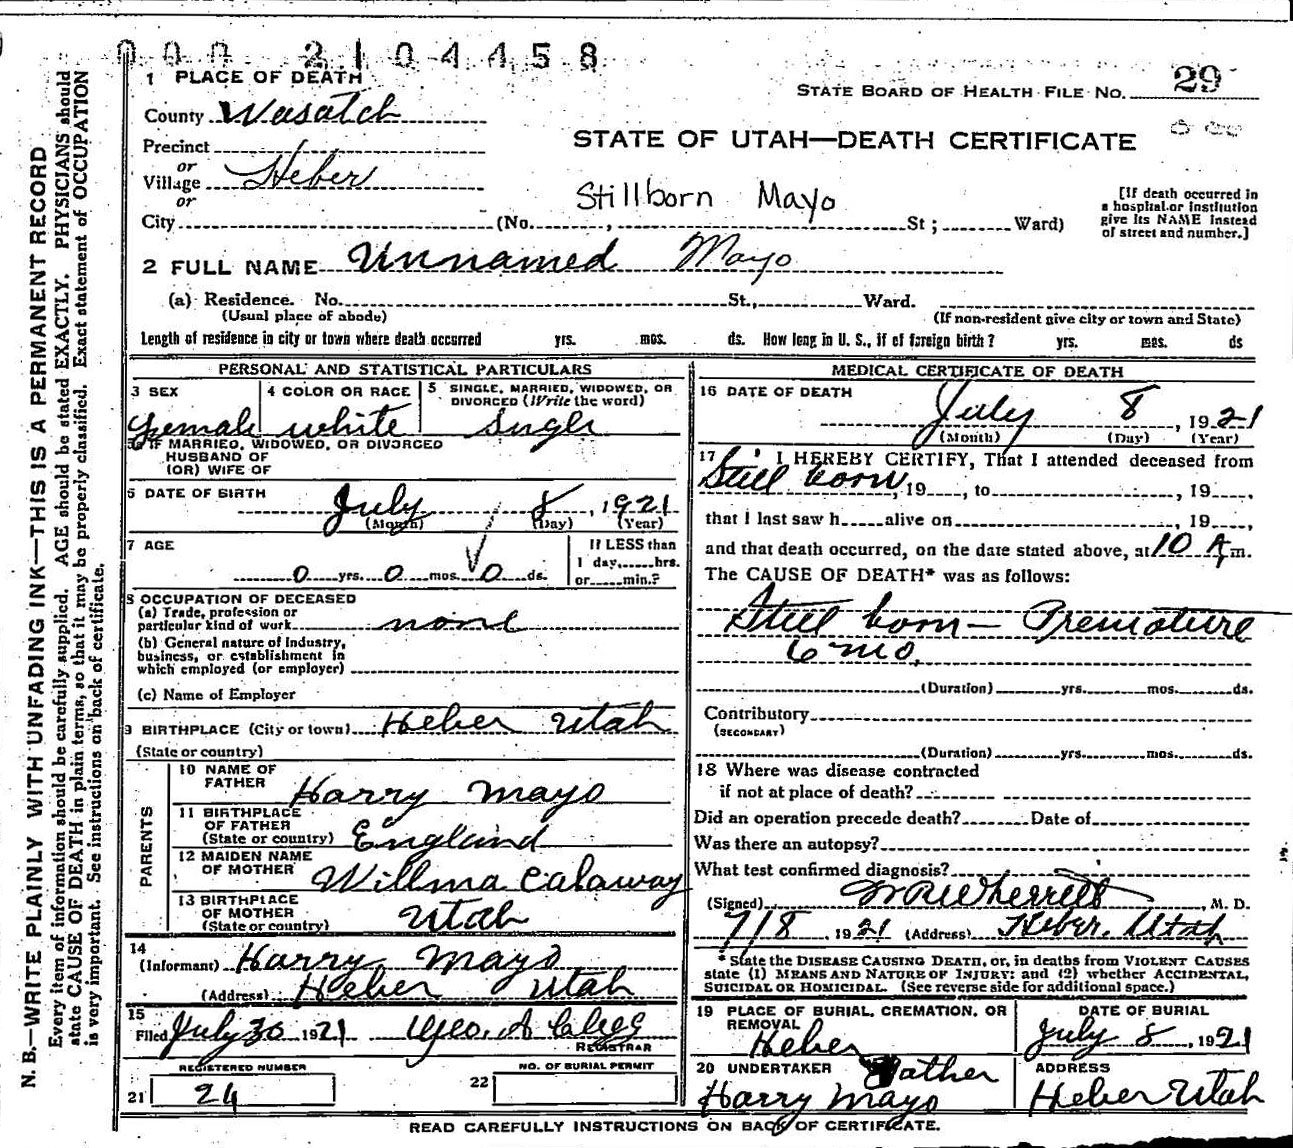 000 2104458
1 PLACE OF DEATH
STATE BOARD OF HEALTH FILE NO. 29
County Wasatch
STATE OF UTAH—DEATH CERTIFICATE
Precinct
or
Village Heber
or
Stillborn Mayo
[If death occurred in
a hospital or institution
give its NAME instead
of street and number.]
City (No. , St ; Ward)
2 FULL NAME Unnamed Mayo
(a) Residence. No. St., Ward.
(Usual place of abode) (If non-resident give city or town and State)
Length of residence in city or town where death occurred yrs. mos. ds. How long in U. S., if of foreign birth? yrs. mos. ds
PERSONAL AND STATISTICAL PARTICULARS
3 SEX 4 COLOR OR RACE 5 SINGLE, MARRIED, WIDOWED, OR
DIVORCED (Write the word)
Female white Single
IF MARRIED, WIDOWED, OR DIVORCED
HUSBAND OF
(OR) WIFE OF
6 DATE OF BIRTH
July 8, 1921
(Month) (Day) (Year)
7 AGE If LESS than
1 day, hrs.
0 yrs. 0 mos. 0 ds. or min.?
8 OCCUPATION OF DECEASED
(a) Trade, profession or
particular kind of work none
(b) General nature of Industry,
business, or establishment in
which employed (or employer)
(c) Name of Employer
9 BIRTHPLACE (City or town) Heber Utah
(State or country)
PARENTS
10 NAME OF
FATHER Harry Mayo
11 BIRTHPLACE
OF FATHER
(State or country) England
12 MAIDEN NAME
OF MOTHER Willma Calaway
13 BIRTHPLACE
OF MOTHER
(State or country) Utah
14
(Informant) Harry Mayo
(Address) Heber Utah
15
Filed July 30 1921 Geo. A Clegg
REGISTRAR
REGISTERED NUMBER NO. OF BURIAL PERMIT
21 24 22
MEDICAL CERTIFICATE OF DEATH
16 DATE OF DEATH
July 8, 1921
(Month) (Day) (Year)
17 I HEREBY CERTIFY, That I attended deceased from
Still born, 19 , to , 19 ,
that I last saw h alive on , 19 ,
and that death occurred, on the date stated above, at 10 A m.
The CAUSE OF DEATH* was as follows:
Still born — Premature
6 mo.
(Duration) yrs. mos. ds.
Contributory
(SECONDARY)
(Duration) yrs. mos. ds.
18 Where was disease contracted
if not at place of death?
Did an operation precede death? Date of
Was there an autopsy?
What test confirmed diagnosis?
(Signed) Wherritt, M. D.
7/8, 1921 (Address) Heber, Utah
* State the DISEASE CAUSING DEATH, or, in deaths from VIOLENT CAUSES
state (1) MEANS AND NATURE OF INJURY; and (2) whether ACCIDENTAL,
SUICIDAL OR HOMICIDAL. (See reverse side for additional space.)
19 PLACE OF BURIAL, CREMATION, OR
REMOVAL
Heber
DATE OF BURIAL
July 8, 1921
20 UNDERTAKER Father
Harry Mayo
ADDRESS
Heber Utah
READ CAREFULLY INSTRUCTIONS ON BACK OF CERTIFICATE.
N. B.—WRITE PLAINLY WITH UNFADING INK—THIS IS A PERMANENT RECORD
Every item of information should be carefully supplied. AGE should be stated EXACTLY. PHYSICIANS should
state CAUSE OF DEATH in plain terms, so that it may be properly classified. Exact statement of OCCUPATION
is very important. See instructions on back of certificate.